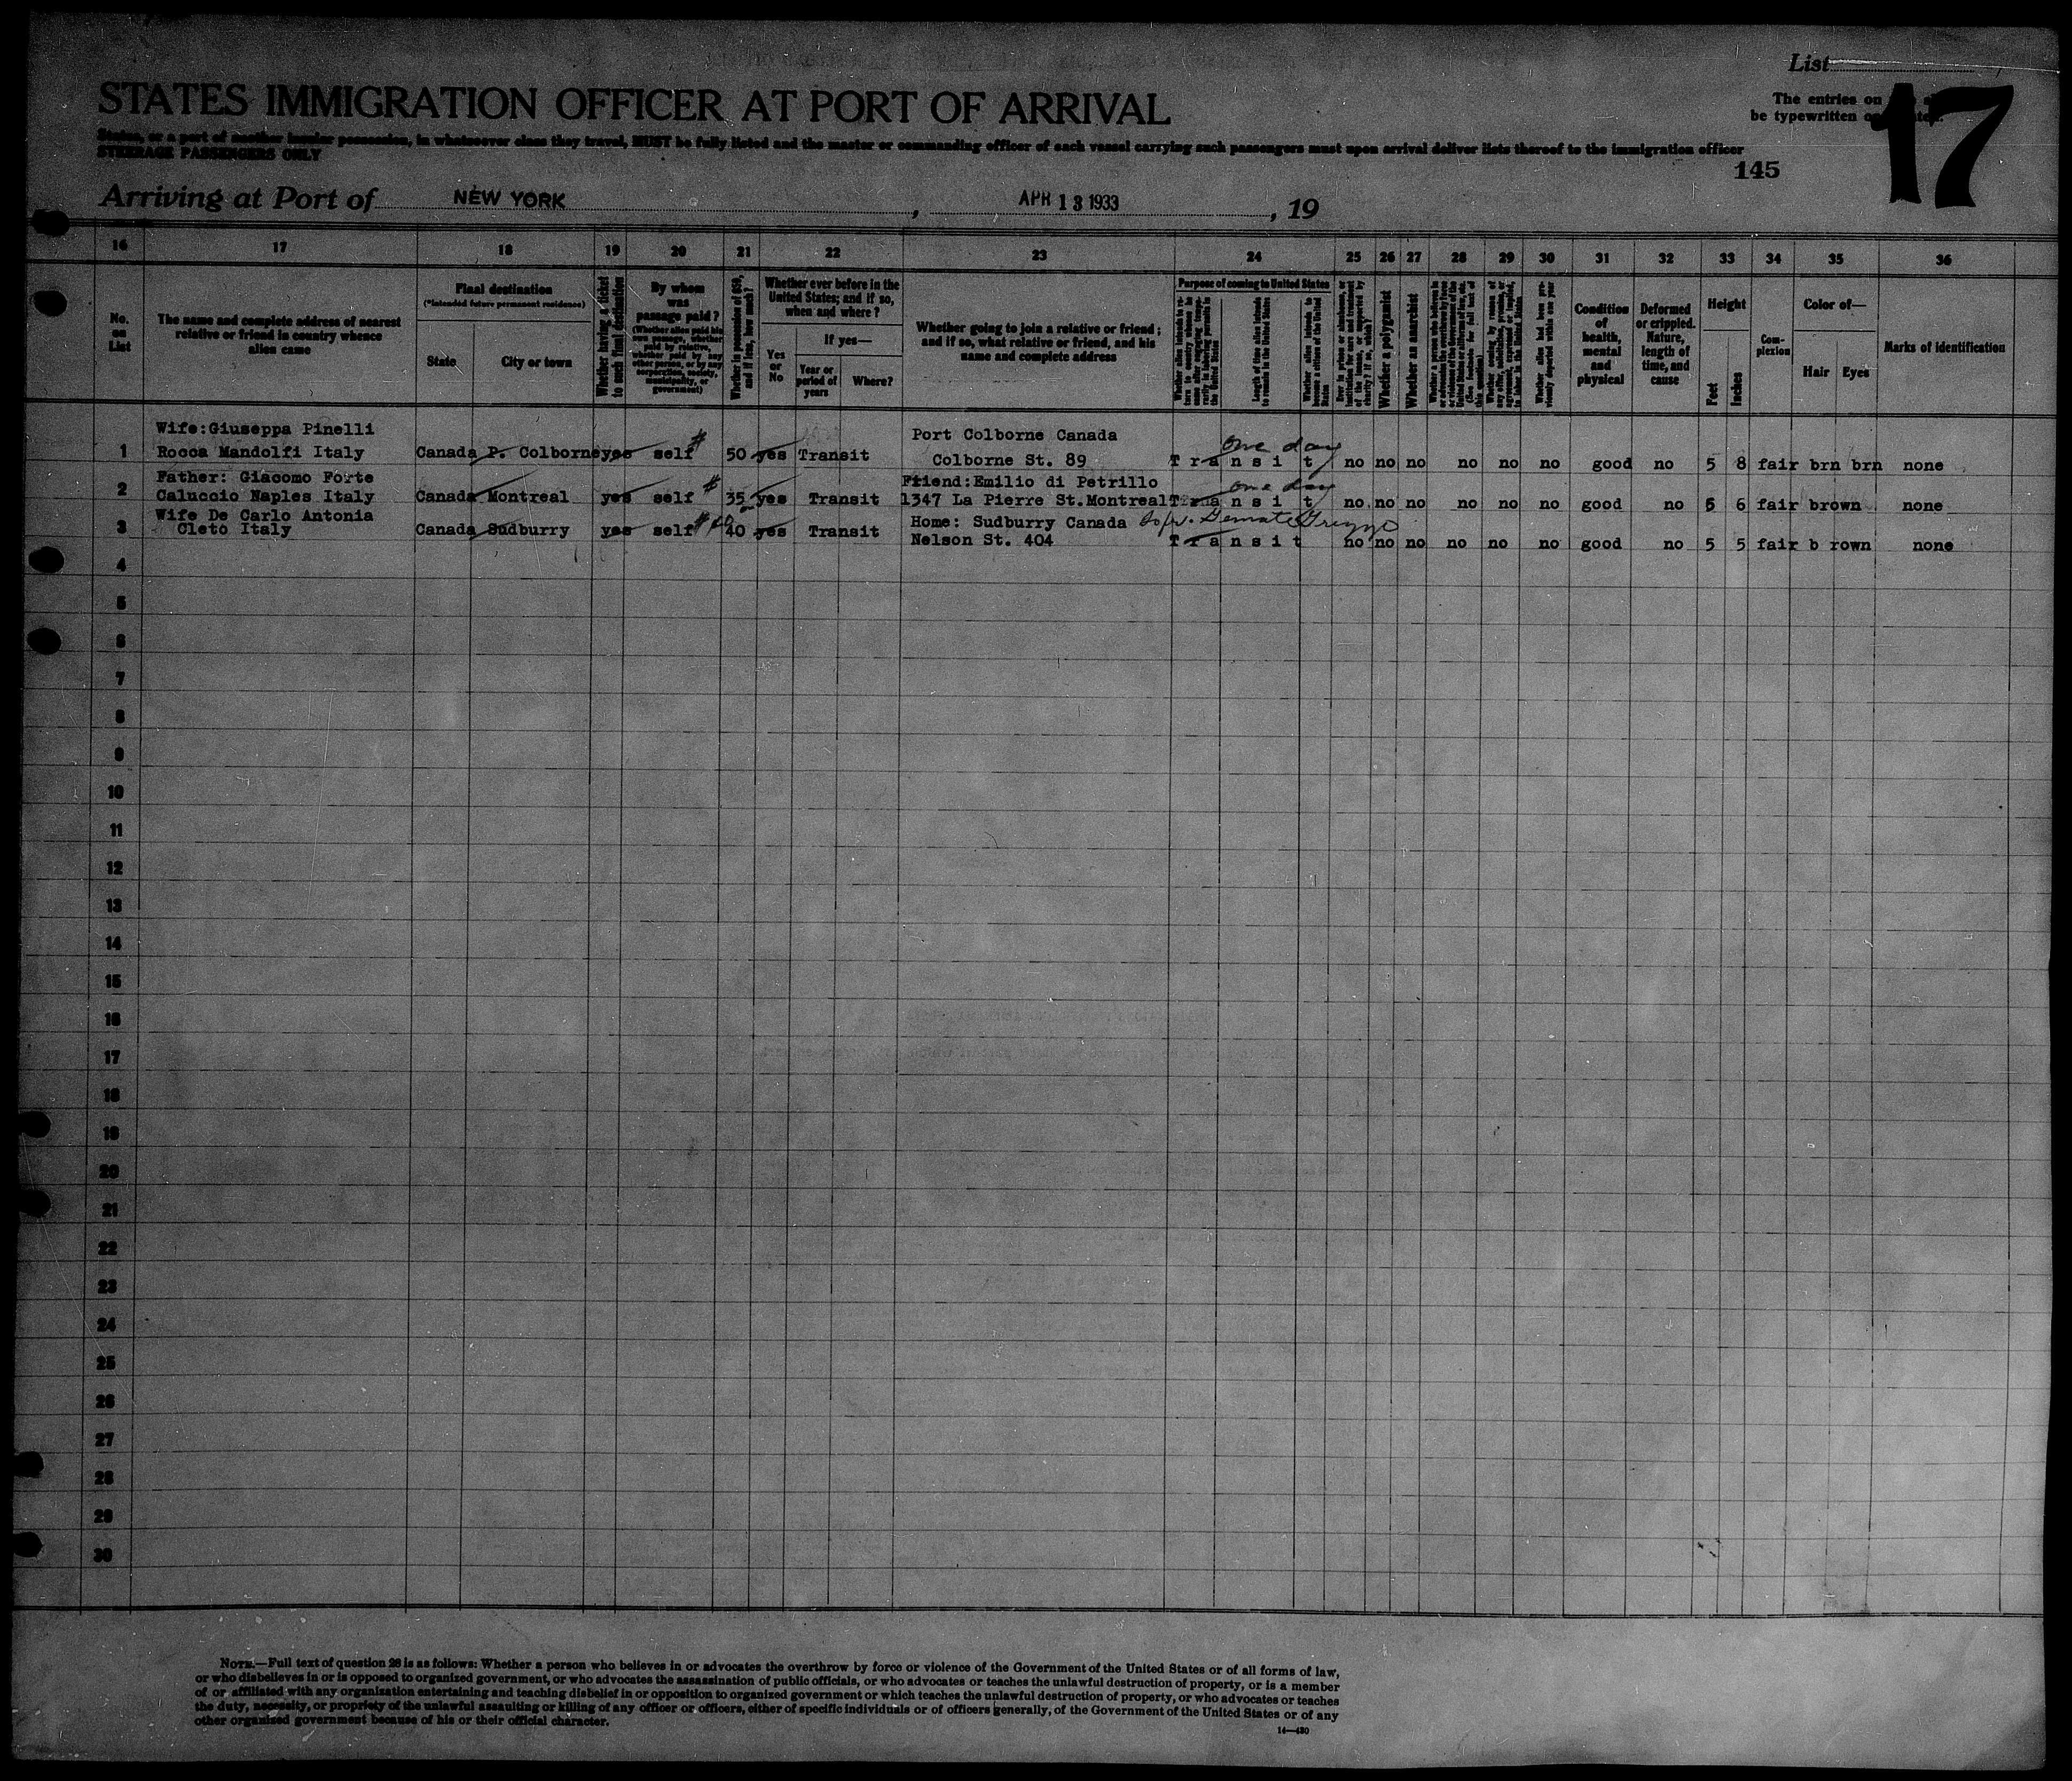 List
17
The entries on
be typewritten
STATES IMMIGRATION OFFICER AT PORT OF ARRIVAL
States, or a part of another insular possession, in whatsoever class they travel, MUST be fully listed and the master or commanding officer of each vessel carrying such passengers must upon arrival deliver lists thereof to the immigration officer
STEERAGE PASSENGERS ONLY
145
Arriving at Port of NEW YORK, APR 13 1933, 19
16 17 18 19 20 21 22 23 24 25 26 27 28 29 30 31 32 33 34 35 36
No. on List
The name and complete address of nearest relative or friend in country whence alien came
Final destination
(*Intended future permanent residence)
State
City or town
Whether having a ticket to such final destination
By whom was passage paid?
(Whether alien paid his own passage, whether paid by relative, whether paid by any other person, or by any corporation, society, municipality, or government)
Whether in possession of $50, and if less, how much?
Whether ever before in the United States; and if so, when and where?
Yes or No
If yes—
Year or period of years
Where?
Whether going to join a relative or friend; and if so, what relative or friend, and his name and complete address
Purpose of coming to United States
Length of time alien intends to remain in the United States
Whether alien intends to become a citizen of the United States
Whether a polygamist
Whether an anarchist
Whether alien had been previously deported within one year
Condition of health, mental and physical
Deformed or crippled. Nature, length of time, and cause
Height
Feet
Inches
Complexion
Color of—
Hair
Eyes
Marks of identification
Wife:Giuseppa Pinelli
Port Colborne Canada
one day
1 Rocca Mandolfi Italy Canada P. Colborne yes self 50 yes Transit Colborne St. 89 Transit no no no no no no good no 5 8 fair brn brn none
Father: Giacomo Forte
Friend:Emilio di Petrillo
one day
2 Caluccio Naples Italy Canada Montreal yes self 35 yes Transit 1347 La Pierre St.Montreal Transit no no no no no no good no 5 6 fair brown none
Wife De Carlo Antonia
Home: Sudburry Canada
3 Cleto Italy Canada Sudburry yes self 40 yes Transit Nelson St. 404 Transit no no no no no no good no 5 5 fair b rown none
4
5
6
7
8
9
10
11
12
13
14
15
16
17
18
19
20
21
22
23
24
25
26
27
28
29
30
NOTE.—Full text of question 28 is as follows: Whether a person who believes in or advocates the overthrow by force or violence of the Government of the United States or of all forms of law,
or who disbelieves in or is opposed to organized government, or who advocates the assassination of public officials, or who advocates or teaches the unlawful destruction of property, or is a member
of or affiliated with any organization entertaining and teaching disbelief in or opposition to organized government or which teaches the unlawful destruction of property, or who advocates or teaches
the duty, necessity, or propriety of the unlawful assaulting or killing of any officer or officers, either of specific individuals or of officers generally, of the Government of the United States or of any
other organized government because of his or their official character.
14—430